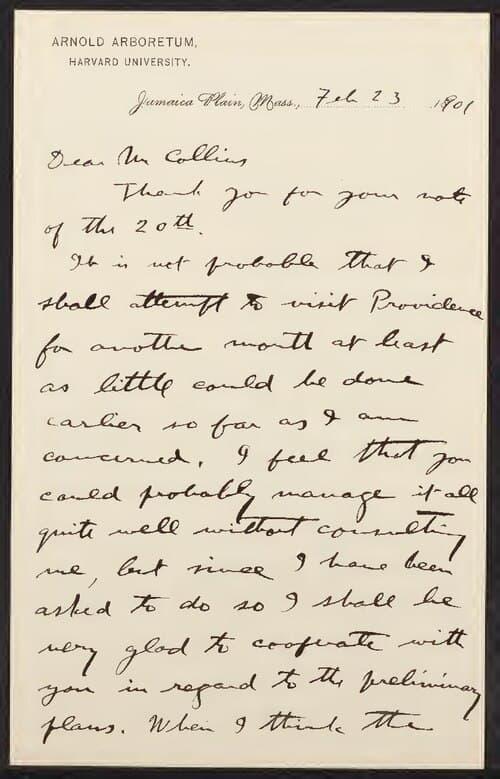 ARNOLD ARBORETUM,
HARVARD UNIVERSITY.
Jamaica Plain, Mass., Feb 23 1901
Dear Mr Collins
Thank you for your note
of the 20th.
It is not probable that I
shall attempt to visit Providence
for another month at least
as little could be done
earlier so far as I am
concerned. I feel that you
could probably manage it all
quite well without consulting
me, but since I have been
asked to do so I shall be
very glad to cooperate with
you in regard to the preliminary
plans. When I think the